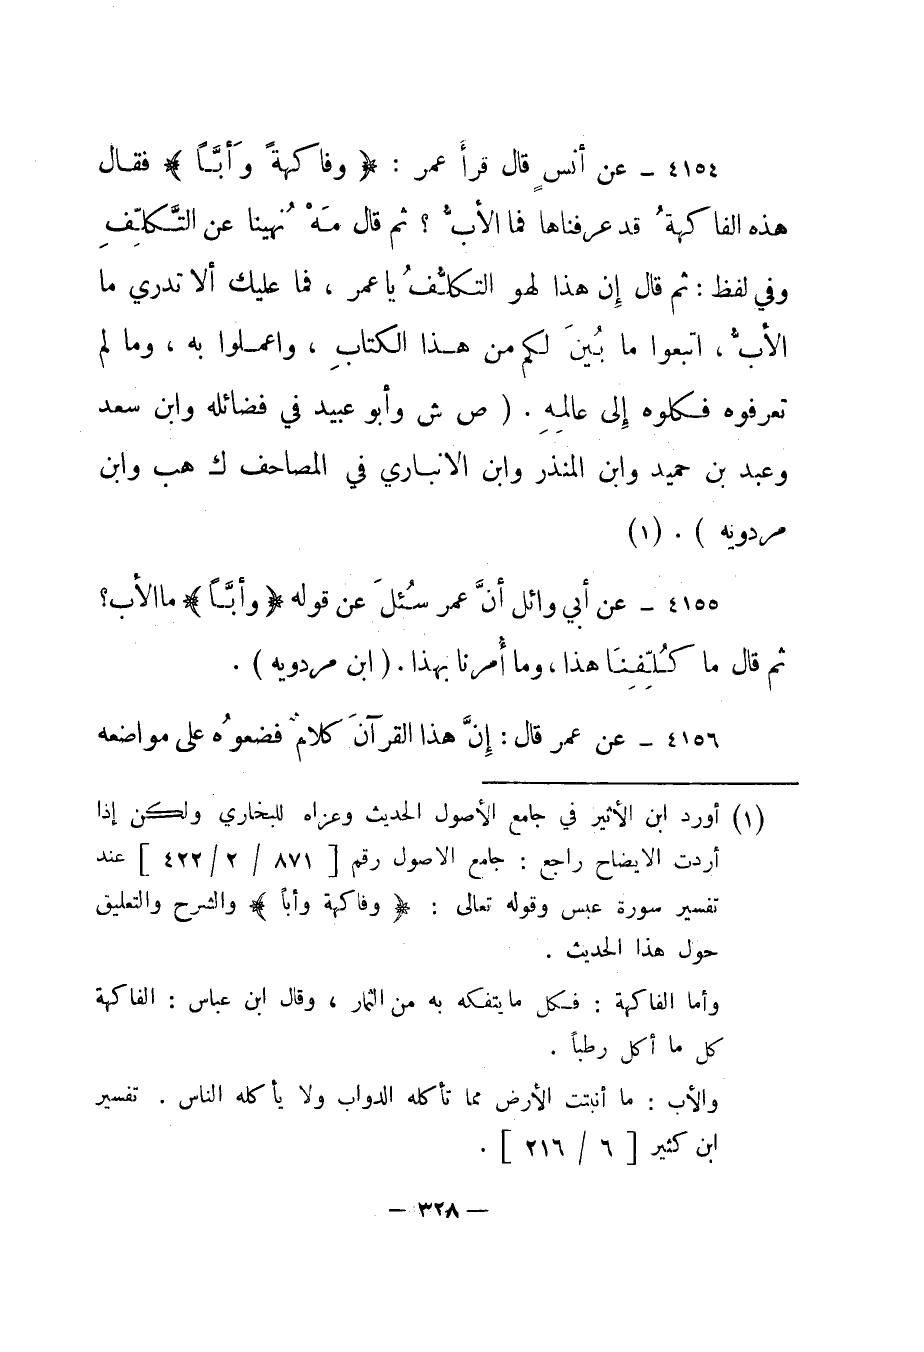 ٤١٥٤ ـ عن أنسٍ قال قرأَ عمر : ﴿ وفاكهةً وَأبَّاً ﴾ فقال
هذه الفاكهةُ قد عرفناها فما الأبُّ ؟ ثم قال مَهْ نُهينا عن التَّكلّفِ
وفي لفظ : ثم قال إن هذا لهو التكلُّفُ يا عمر ، فما عليك ألا تدري ما
الأبُّ ، اتبعوا ما بُيِنَ لكم من هذا الكتابِ ، واعملوا به ، وما لم
تعرفوه فكلوه إلى عالِمِهِ . ( ص ش وأبو عبيد في فضائله وابن سعد
وعبد بن حميد وابن المنذر وابن الانباري في المصاحف ك هب وابن
مردويه ) . (١)
٤١٥٥ ـ عن أبي وائل أنَّ عمر سُئلَ عن قوله ﴿ وأبَّاً ﴾ ما الأب؟
ثم قال ما كُلِّفِنَا هذا ، وما أُمرنا بهذا . ( ابن مردويه ) .
٤١٥٦ ـ عن عمر قال : إنَّ هذا القرآنَ كلامٌ فضعوُه على مواضعه
(١) أورد ابن الأثير في جامع الأصول الحديث وعزاه للبخاري ولكن إذا
أردت الايضاح راجع : جامع الاصول رقم [ ٨٧١ / ٢ / ٤٢٢ ] عند
تفسير سورة عبس وقوله تعالى : ﴿ وفاكهة وأباً ﴾ والشرح والتعليق
حول هذا الحديث .
وأما الفاكهة : فكل ما يتفكه به من الثمار ، وقال ابن عباس : الفاكهة
كل ما أكل رطباً .
والأب : ما أنبتت الأرض مما تأكله الدواب ولا يأكله الناس . تفسير
ابن كثير [ ٦ / ٢١٦ ] .
— ٣٢٨ —